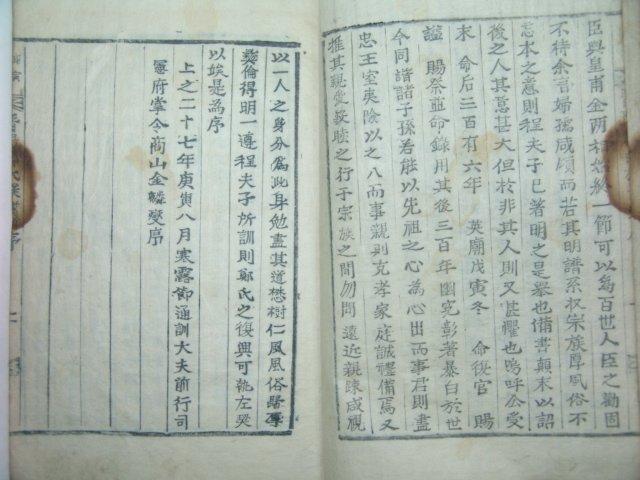 臣與皇甫金兩相始終一節可以爲百世人臣之勸固
不待余言婦孺咸頌而若其明譜系收宗族厚風俗不
忘本之意則程夫子已著明之是擧也備書顚末以詔
後之人其意甚大但於非其人則又甚懼也嗚呼公受
求 命后三百有六年 英廟戊寅冬 命復官 賜
諡 賜祭並命錄用其後三百年幽寃彰著暴白於世
今同諧諸子孫若能以先祖之心爲心出而事君則盡
忠王室夷險以之入而事親則克孝家庭誠禮備焉又
推其親愛敦睦之行于宗族之間勿問 遠近親踈咸視
以一人之身分爲此身勉盡其道懋樹仁風風俗歸厚
彝倫得明一遵程夫子所訓則鄭氏之復興可執左契
以竢是爲序
上之二十七年庚寅八月寒露節通訓大夫前行司
憲府掌令商山金麟燮序
氏族譜序